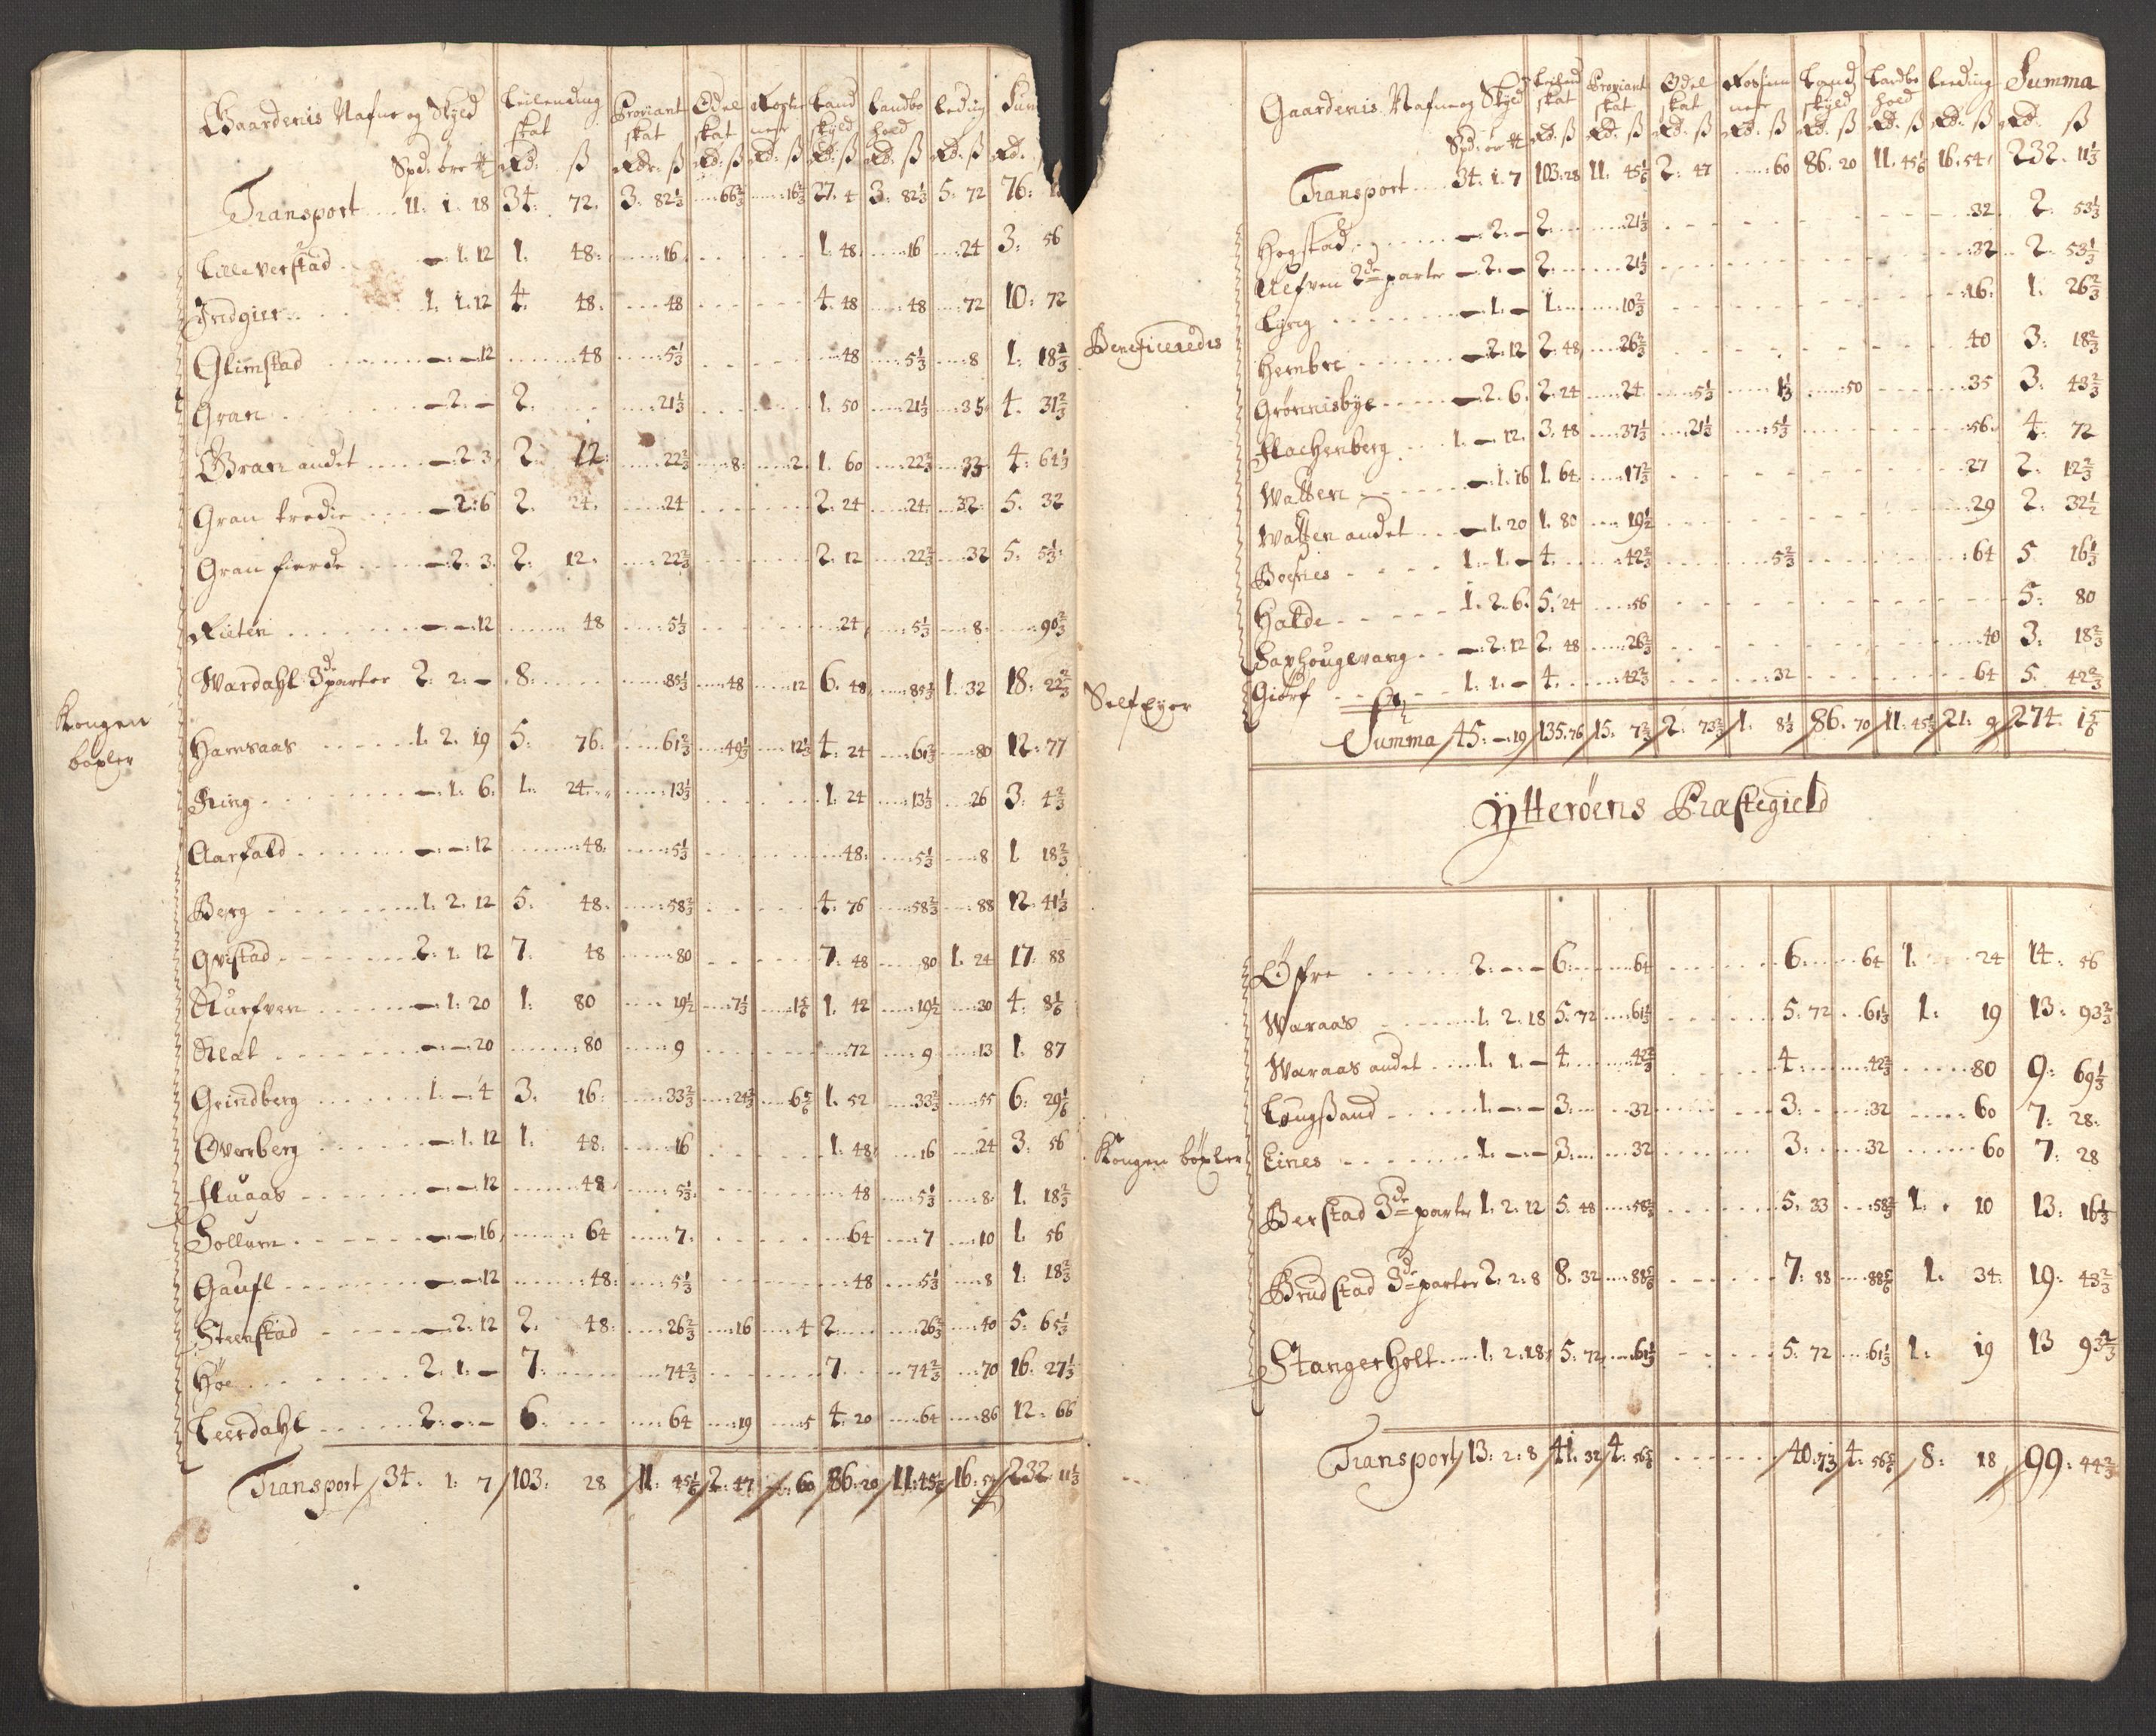 Gaardenis Nafne og Skyld | Leilending skat | Proviant skat | Odel skat | Rosten nefr | Land skyld | Landbo hold | Leding | Sum
Spd: öre # | Rd: ß | Rdr: ß | Rd: ß | Rd: ß | Rd: ß | Rd: ß | Rd: ß | Rd:
Transport 11: 1: 18 | 34: 72: | 3: 82⅓ | 66⅔ | 16⅔ | 27: 4 | 3: 82⅓ | 5: 72 | 76:
Lille Verstad — 1: 12 | 1: 48: | 16 | | | 1: 48 | 16 | 24 | 3: 56
Indgier 1: 1: 12 | 4: 48: | 48 | | | 4: 48 | 48 | 72 | 10: 72
Glimstad — — 12 | 48 | 5⅓ | | | 48 | 5⅓ | 8 | 1: 18⅔
Gran — 2: — | 2: | 21⅓ | | | 1: 50 | 21⅓ | 35 | 4: 31⅔
Gran andet — 2: 3 | 2: 12: | 22⅔ | 8: | 2: | 1: 60 | 22⅔ | 33 | 4: 64⅓
Gran tredie — 2: 6 | 2: 24: | 24 | | | 2: 24 | 24 | 32 | 5: 32
Gran fierde — 2: 3: | 2: 12: | 22⅔ | | | 2: 12 | 22⅔ | 32 | 5: 5⅓
Rieten — — 12 | 48 | 5⅓ | | | 24 | 5⅓ | 8 | 90⅔
Wardahl 3de parter 2: 2: — | 8: | 85⅓ | 48 | 12 | 6: 48 | 85⅓ | 1: 32 | 18: 22⅔
Kongen
böxler
Hamsaas 1: 2: 19 | 5: 76: | 61⅔ | 49⅓ | 12⅓ | 4: 24 | 61⅔ | 80 | 12: 77
Ring — 1: 6: | 1: 24: | 13⅓ | | | 1: 24 | 13⅓ | 26 | 3: 4⅔
Aarfald — — 12 | 48: | 5⅓ | | | 48: | 5⅓ | 8 | 1 18⅔
Berg 1: 2: 12 | 5: 48: | 58⅔ | | | 4: 76 | 58⅔ | 88 | 12: 41⅓
Qvistad 2: 1: 12 | 7: 48 | 80 | | | 7: 48 | 80 | 1: 24 | 17: 88
Aurfven — 1: 20 | 1: 80 | 19½ | 7⅓ | 1⅚ | 1: 42 | 19½ | 30 | 4: 8⅙
Aleal — — 20 | 80 | 9 | | | 72 | 9 | 13 | 1: 87
Grindberg 1: — 4 | 3: 16: | 33⅔ | 24⅔ | 6⅚ | 1: 52 | 33⅔ | 55 | 6: 29⅙
Overberg — 1: 12 | 1: 48: | 16 | | | 1: 48 | 16 | 24 | 3: 56
Fluaas — — 12 | 48 | 5⅓ | | | 48 | 5⅓ | 8 | 1: 18⅔
Sollum — — 16 | 64 | 7: | | | 64 | 7 | 10 | 1: 56
Gaufl — — 12 | 48: | 5⅓ | | | 48 | 5⅓ | 8 | 1: 18⅔
Steenstad — 2: 12 | 2: 48: | 26⅔ | 16 | 4 | 2: | 26⅔ | 40 | 5: 65⅓
Höe 2: 1: — | 7: | 74⅔ | | | 7: | 74⅔ | 70 | 16: 27⅓
Leerdahl 2: — — | 6: | 64 | 19 | 5 | 4: 20 | 64 | 86 | 12: 66
Transport 34: 1: 7 | 103: 28 | 11: 45⅙ | 2: 47 | 60 | 86: 20 | 11: 45⅙ | 16: 54 | 232: 11⅓
Gaardenis Nafne og Skyld | Leilend skat | Proviant skat | Odel skat | Rosten nefr | Land skyld | Landbo hold | Leeding | Summa
Spd: ör # | Rd: ß | Rd: ß | Rd: ß | Rd: ß | Rd: ß | Rd: ß | Rd: ß | Rd: ß
Transport 34: 1: 7 | 103: 28 | 11: 45⅙ | 2: 47 | 60 | 86: 20 | 11: 45⅙ | 16: 54 | 232: 11⅓
Hogstad — 2: — | 2: | 21⅓ | | | | | 32 | 2: 53⅓
Alefven 2de parter — 2: — | 2: | 21⅓ | | | | | 32 | 2: 53⅓
Lyng — 1: — | 1: | 10⅔ | | | | | 16: | 1: 26⅔
Beneficeredis
Hembre — 2: 12 | 2: 48 | 26⅔ | | | | | 40 | 3: 18⅔
Grönnisbye — 2: 6: | 2: 24 | 24 | 5⅓ | 1⅓ | 50 | | 35 | 3: 43⅔
Flachenberg 1: — 12: | 3: 48 | 37⅓ | 21⅓ | 5⅓ | | | 56 | 4: 72
Watten — 1: 16 | 1: 64: | 17⅔ | | | | | 27 | 2: 12⅔
Watten andet — 1: 20 | 1: 80 | 19½ | | | | | 29 | 2: 32½
Boesnes 1: 1: — | 4: | 42⅔ | | 5⅔ | | | 64 | 5 16⅓
Halde 1: 2: 6: | 5: 24 | 56 | | | | | | 5: 80
Saxhougevang — 2: 12 | 2: 48 | 26⅔ | | | | | 40 | 3: 18⅔
Self Eyer
Giörf 1: 1: — | 4: | 42⅔ | | 32 | | | 64 | 5: 42⅔
Summa 45: — 19 | 135: 76 | 15: 7⅔ | 2: 73⅔ | 1: 8⅓ | 86: 70 | 11: 45⅙ | 21: 9 | 274: 1⅚
Ÿtterøens Præstegield
Øfre 2: — — | 6: | 64 | | | 6: | 64 | 1: 24 | 14: 56
Waraas 1: 2: 18 | 5: 72 | 61⅓ | | | 5: 72 | 61⅓ | 1: 19 | 13: 93⅔
Waraas andet 1: 1: — | 4 | 42⅔ | | | 4: | 42⅔ | 80 | 9: 69⅓
Langsand 1: — — | 3: | 32 | | | 3: | 32 | 60 | 7: 28:
Kongen böxler
Eines 1: — — | 3: | 32 | | | 3: | 32 | 60 | 7: 28
Berstad 3de parter 1: 2: 12 | 5: 48 | 58⅔ | | | 5: 33 | 58⅔ | 1: 10 | 13: 16⅓
Brudstad 3de parter 2: 2: 8 | 8: 32 | 88⅚ | | | 7: 88 | 88⅚ | 1: 34: | 19: 43⅔
Stangerholt 1: 2: 18 | 5: 72 | 61⅓ | | | 5: 72 | 61⅓ | 1: 19 | 13 93⅔
Transport 13: 2: 8 | 41: 32 | 4: 56⅚ | | | 40: 73 | 4: 56⅚ | 8: 18 | 99: 44⅔